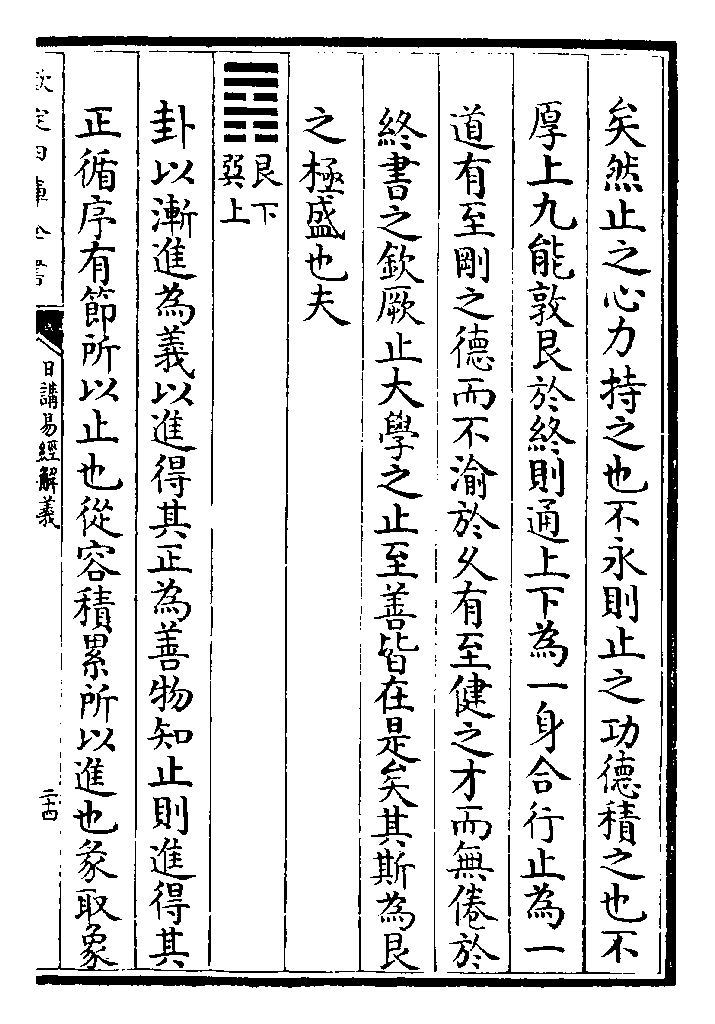 矣然止之心力持之也不永則止之功德積之也不
厚上九能敦艮於終則通上下為一身合行止為一
道有至剛之德而不渝於久有至健之才而無倦於
終書之欽厥止大學之止至善皆在是矣其斯為艮
之極盛也夫
䷴艮下
巽上
卦以漸進為義以進得其正為善物知止則進得其
正循序有節所以止也從容積累所以進也彖取象
欽定四庫全書
日講易經解義
二十四